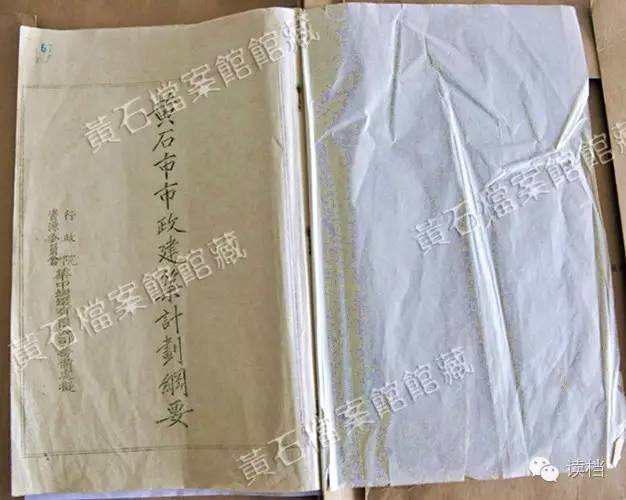 黃石市市政建築計劃綱要
行政院
資源委員會
華中鋼鐵有限公司
黃石檔案館館藏
黃石檔案館館藏
黃石檔案館館藏
黃石檔案館館藏
读档